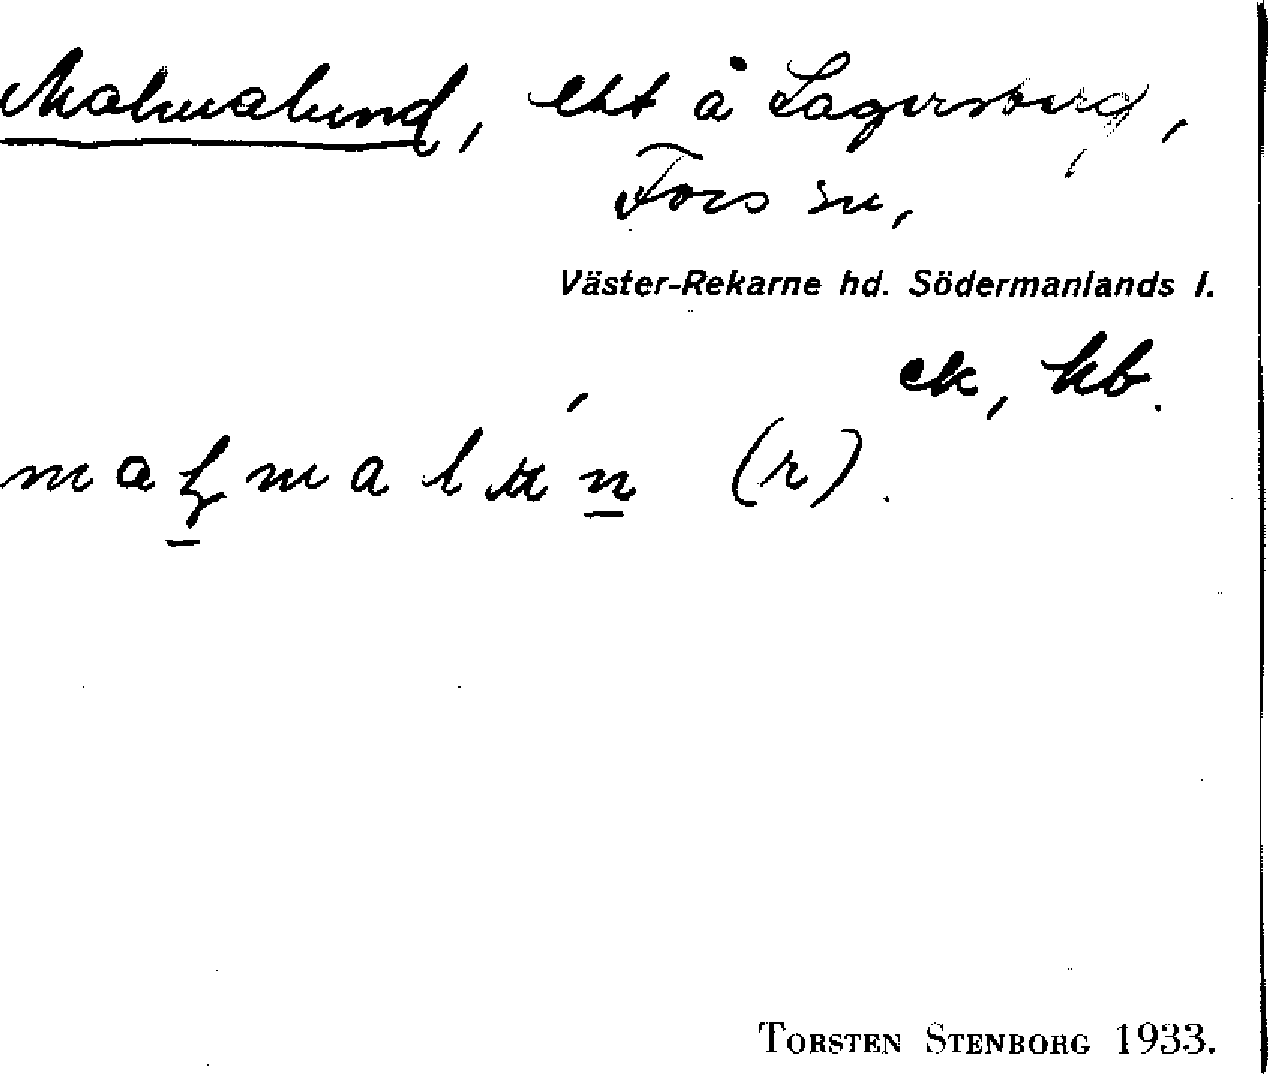 Malmalund, lht å Lagersberg,
Fors sn,
Väster-Rekarne hd. Södermanlands l.
ek, kb.
(r).
TORSTEN STENBORG 1933.